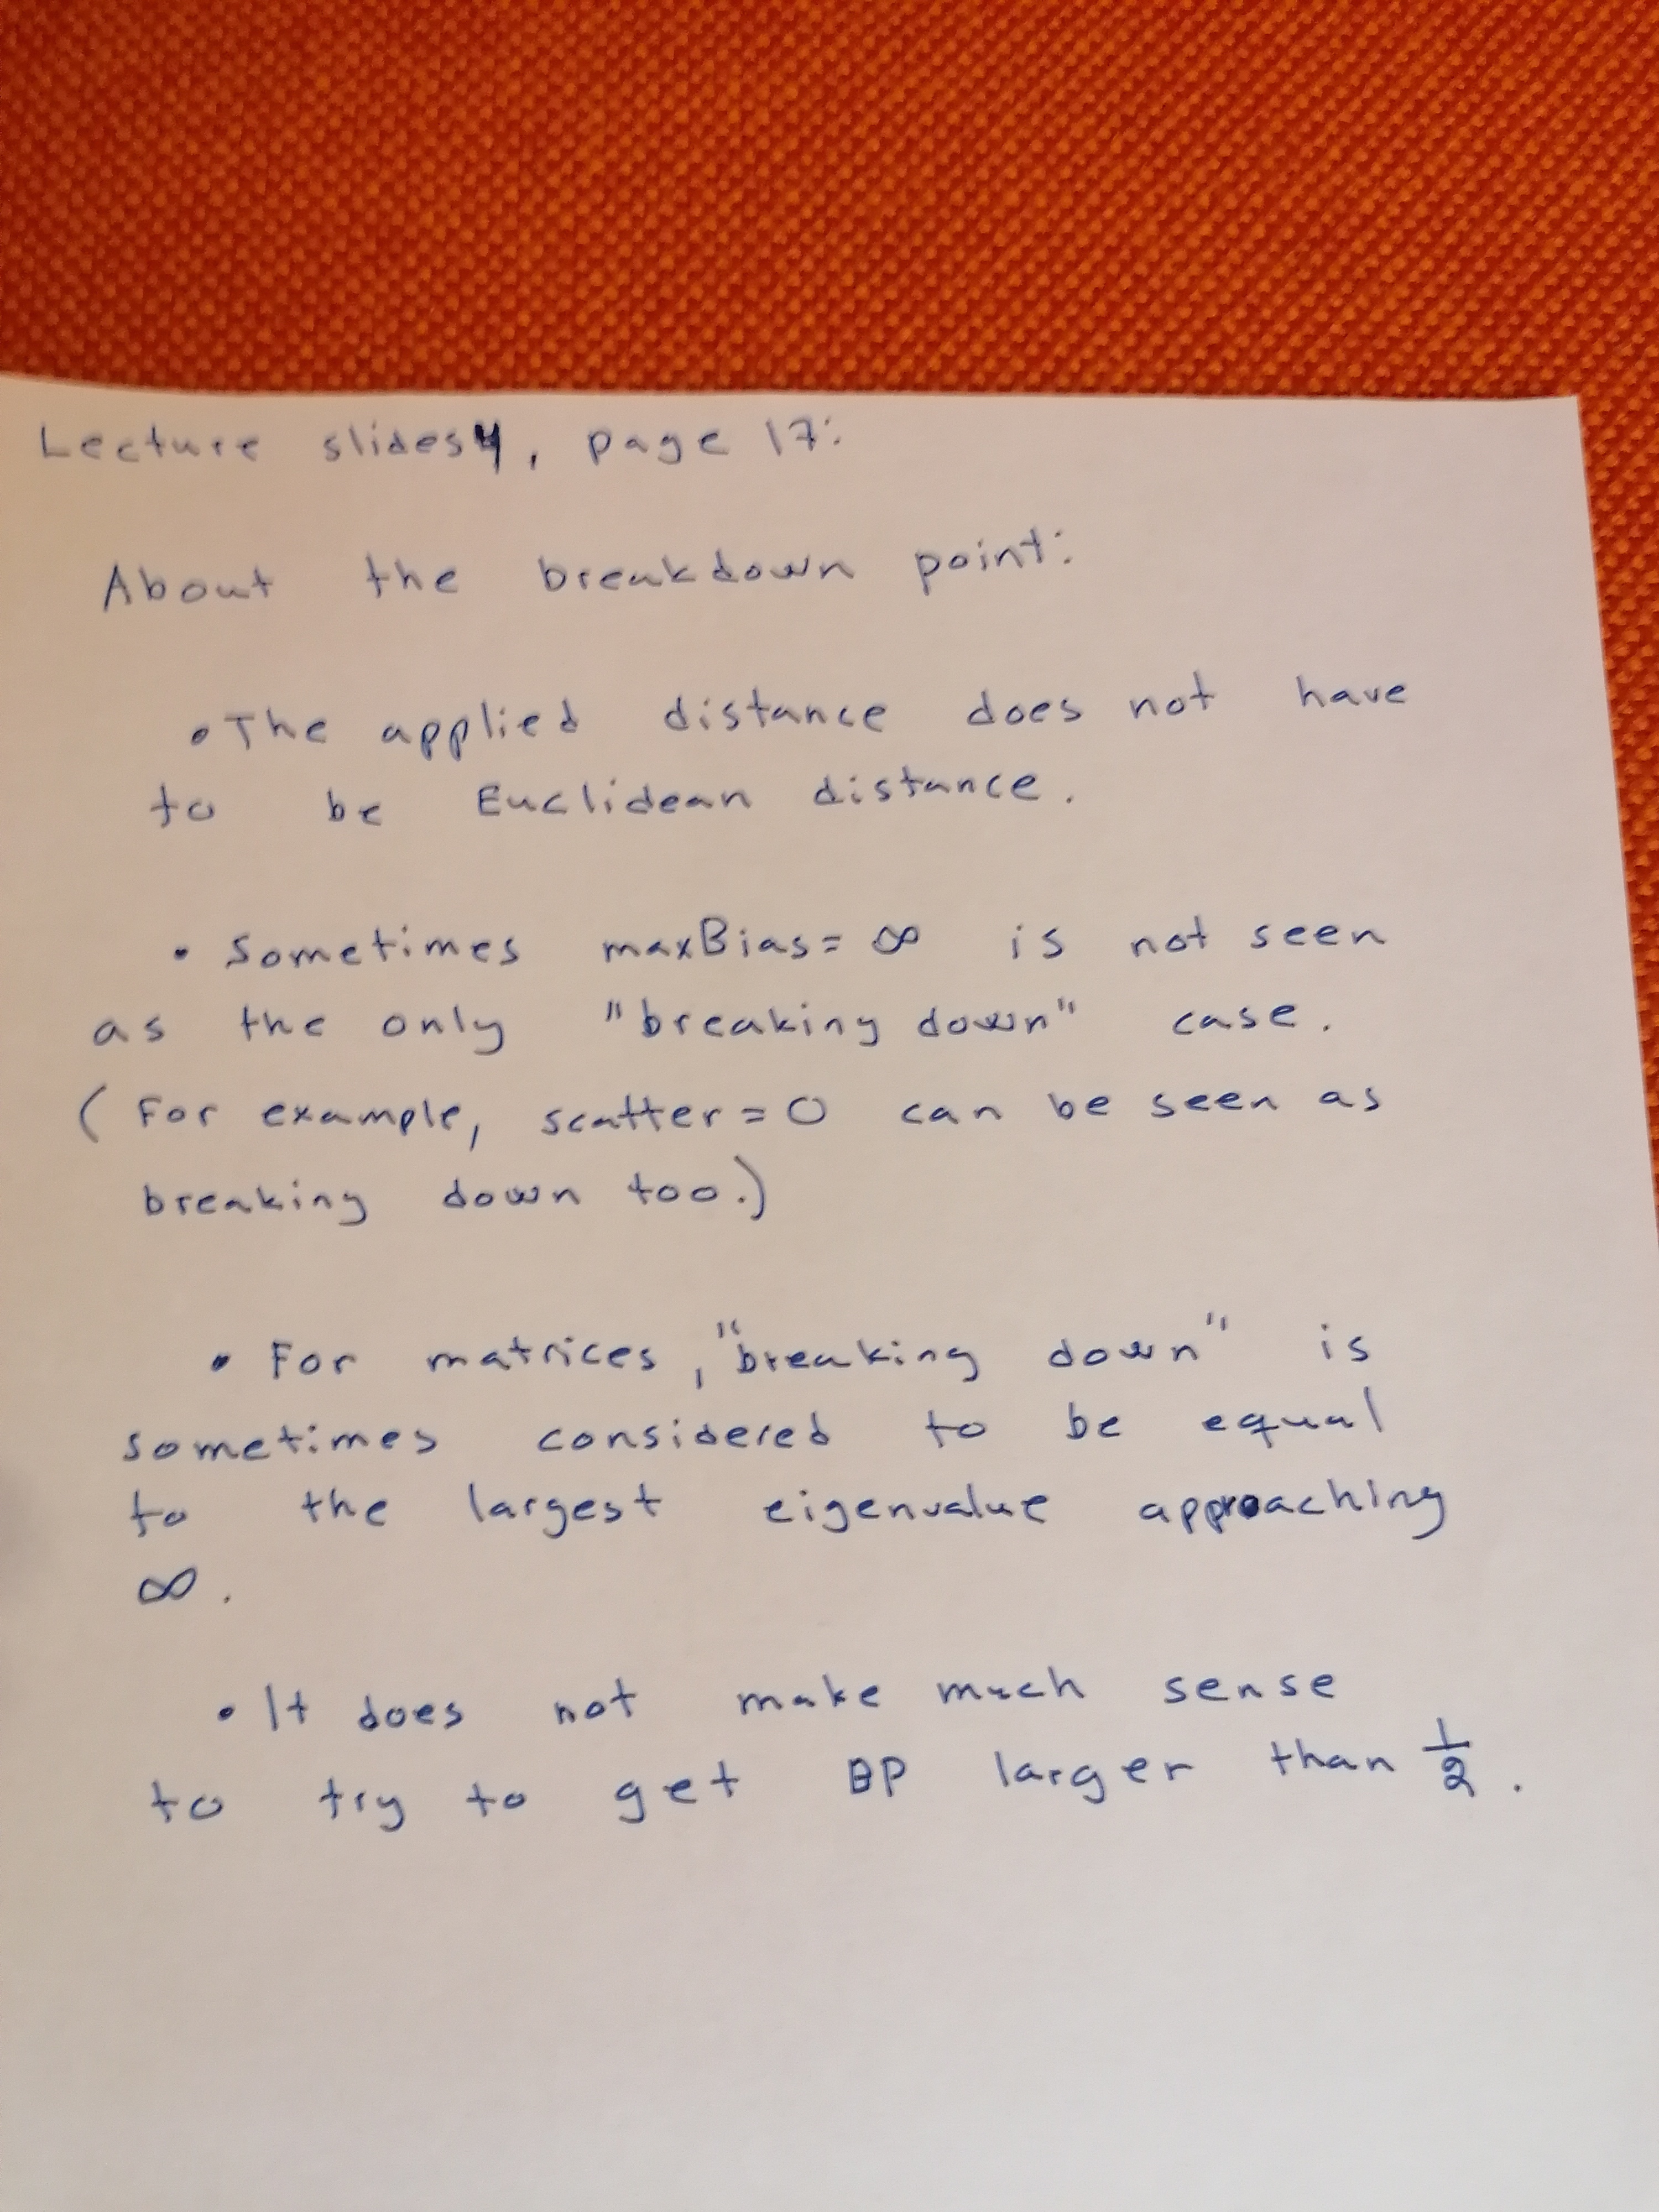 Lecture slides 4, page 17:
About the breakdown point:
• The applied distance does not have
to be Euclidean distance.
• Sometimes maxBias = ∞ is not seen
as the only "breaking down" case.
(For example, scatter = 0 can be seen as
breaking down too.)
• For matrices, "breaking down" is
sometimes considered to be equal
to the largest eigenvalue approaching
∞.
• It does not make much sense
to try to get BP larger than 1/2.